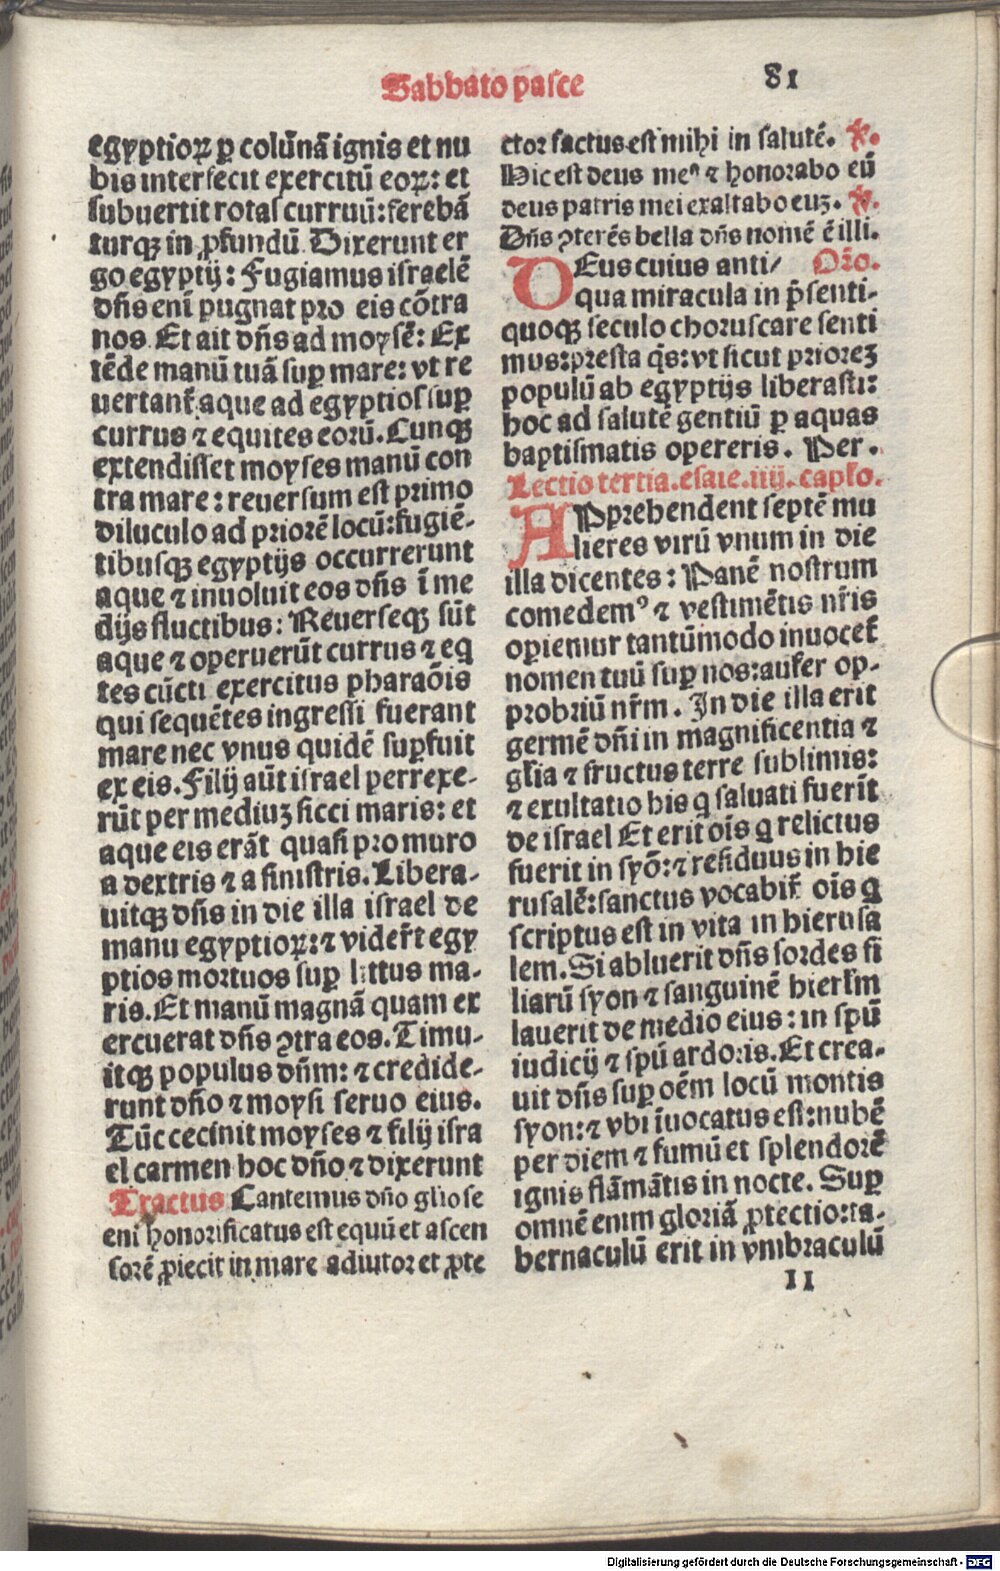 Sabbato pasce
81
egyptioꝝ ꝑ colūnā ignis et nu
bis interfecit exercitū eoꝝ: et
subuertit rotas curruū: ferebā
turqꝫ in ꝓfundū. Dixerunt er
go egyptij: Fugiamus israelē
dn̄s eni pugnat pro eis cōtra
nos. Et ait dn̄s ad moysē: Ex
tēde manū tuā suꝑ mare: vt re
uertant᷑ aque ad egyptios suꝑ
currus ⁊ equites eorū. Cunqꝫ
extendisset moyses manū con
tra mare: reuersum est primo
diluculo ad priorē locū: fugiē-
tibusqꝫ egyptijs occurrerunt
aque ⁊ inuoluit eos dn̄s ī me
dijs fluctibus: Reuerseqꝫ sūt
aque ⁊ operuerūt currus ⁊ eq
tes cūcti exercitus pharaōis
qui sequētes ingressi fuerant
mare nec vnus quidē suꝑfuit
ex eis. Filij aūt israel perrexe-
rūt per mediuꝫ sicci maris: et
aque eis erāt quasi pro muro
a dextris ⁊ a sinistris. Libera-
uitqꝫ dn̄s in die illa israel de
manu egyptioꝝ: ⁊ vider̄t egy
ptios mortuos suꝑ littus ma-
ris. Et manū magnā quam ex
ercuerat dn̄s ꝯtra eos. Timu-
itqꝫ populus dn̄m: ⁊ credide-
runt dn̄o ⁊ moysi seruo eius.
Tūc cecinit moyses ⁊ filij isra
el carmen hoc dn̄o ⁊ dixerunt
Tractus Cantemus dn̄o gliose
eni honorificatus est equū et ascen
sorē ꝓiecit in mare adiutor et ꝓte
ctor factus est mihi in salutē. ℣.
Hic est deus meꝰ ⁊ honorabo eū
deus patris mei exaltabo euꝫ. ℣.
Dn̄s ꝯterēs bella dn̄s nomē ē illi.
DEus cuius anti/ Orō.
qua miracula in p̄senti-
quoqꝫ seculo choruscare senti
mus: presta q̄s: vt sicut prioreꝫ
populū ab egyptijs liberasti:
hoc ad salutē gentiū ꝑ aquas
baptismatis opereris. Per.
Lectio tertia. esaie. iiij. capło.
APprehendent septē mu
lieres virū vnum in die
illa dicentes: Panē nostrum
comedemꝰ ⁊ vestimētis nr̄is
opiemur tantūmodo inuocet᷑
nomen tuū suꝑ nos: aufer op-
probriū nr̄m. In die illa erit
germē dn̄i in magnificentia ⁊
glia ⁊ fructus terre sublimis:
⁊ exultatio his q saluati fuerīt
de israel Et erit oīs q relictus
fuerit in syō: ⁊ residuus in hie
rusalē: sanctus vocabit᷑ oīs q
scriptus est in vita in hierusa
lem. Si abluerit dn̄s sordes fi
liarū syon ⁊ sanguinē hierłm
lauerit de medio eius: in spū
iudicij ⁊ spū ardoris. Et crea-
uit dn̄s suꝑ oēm locū montis
syon: ⁊ vbi īuocatus est: nubē
per diem ⁊ fumū et splendorē
ignis flāmātis in nocte. Suꝑ
omnē enim gloriā ꝓtectio: ta-
bernaculū erit in vmbraculū
II
Digitalisierung gefördert durch die Deutsche Forschungsgemeinschaft - DFG